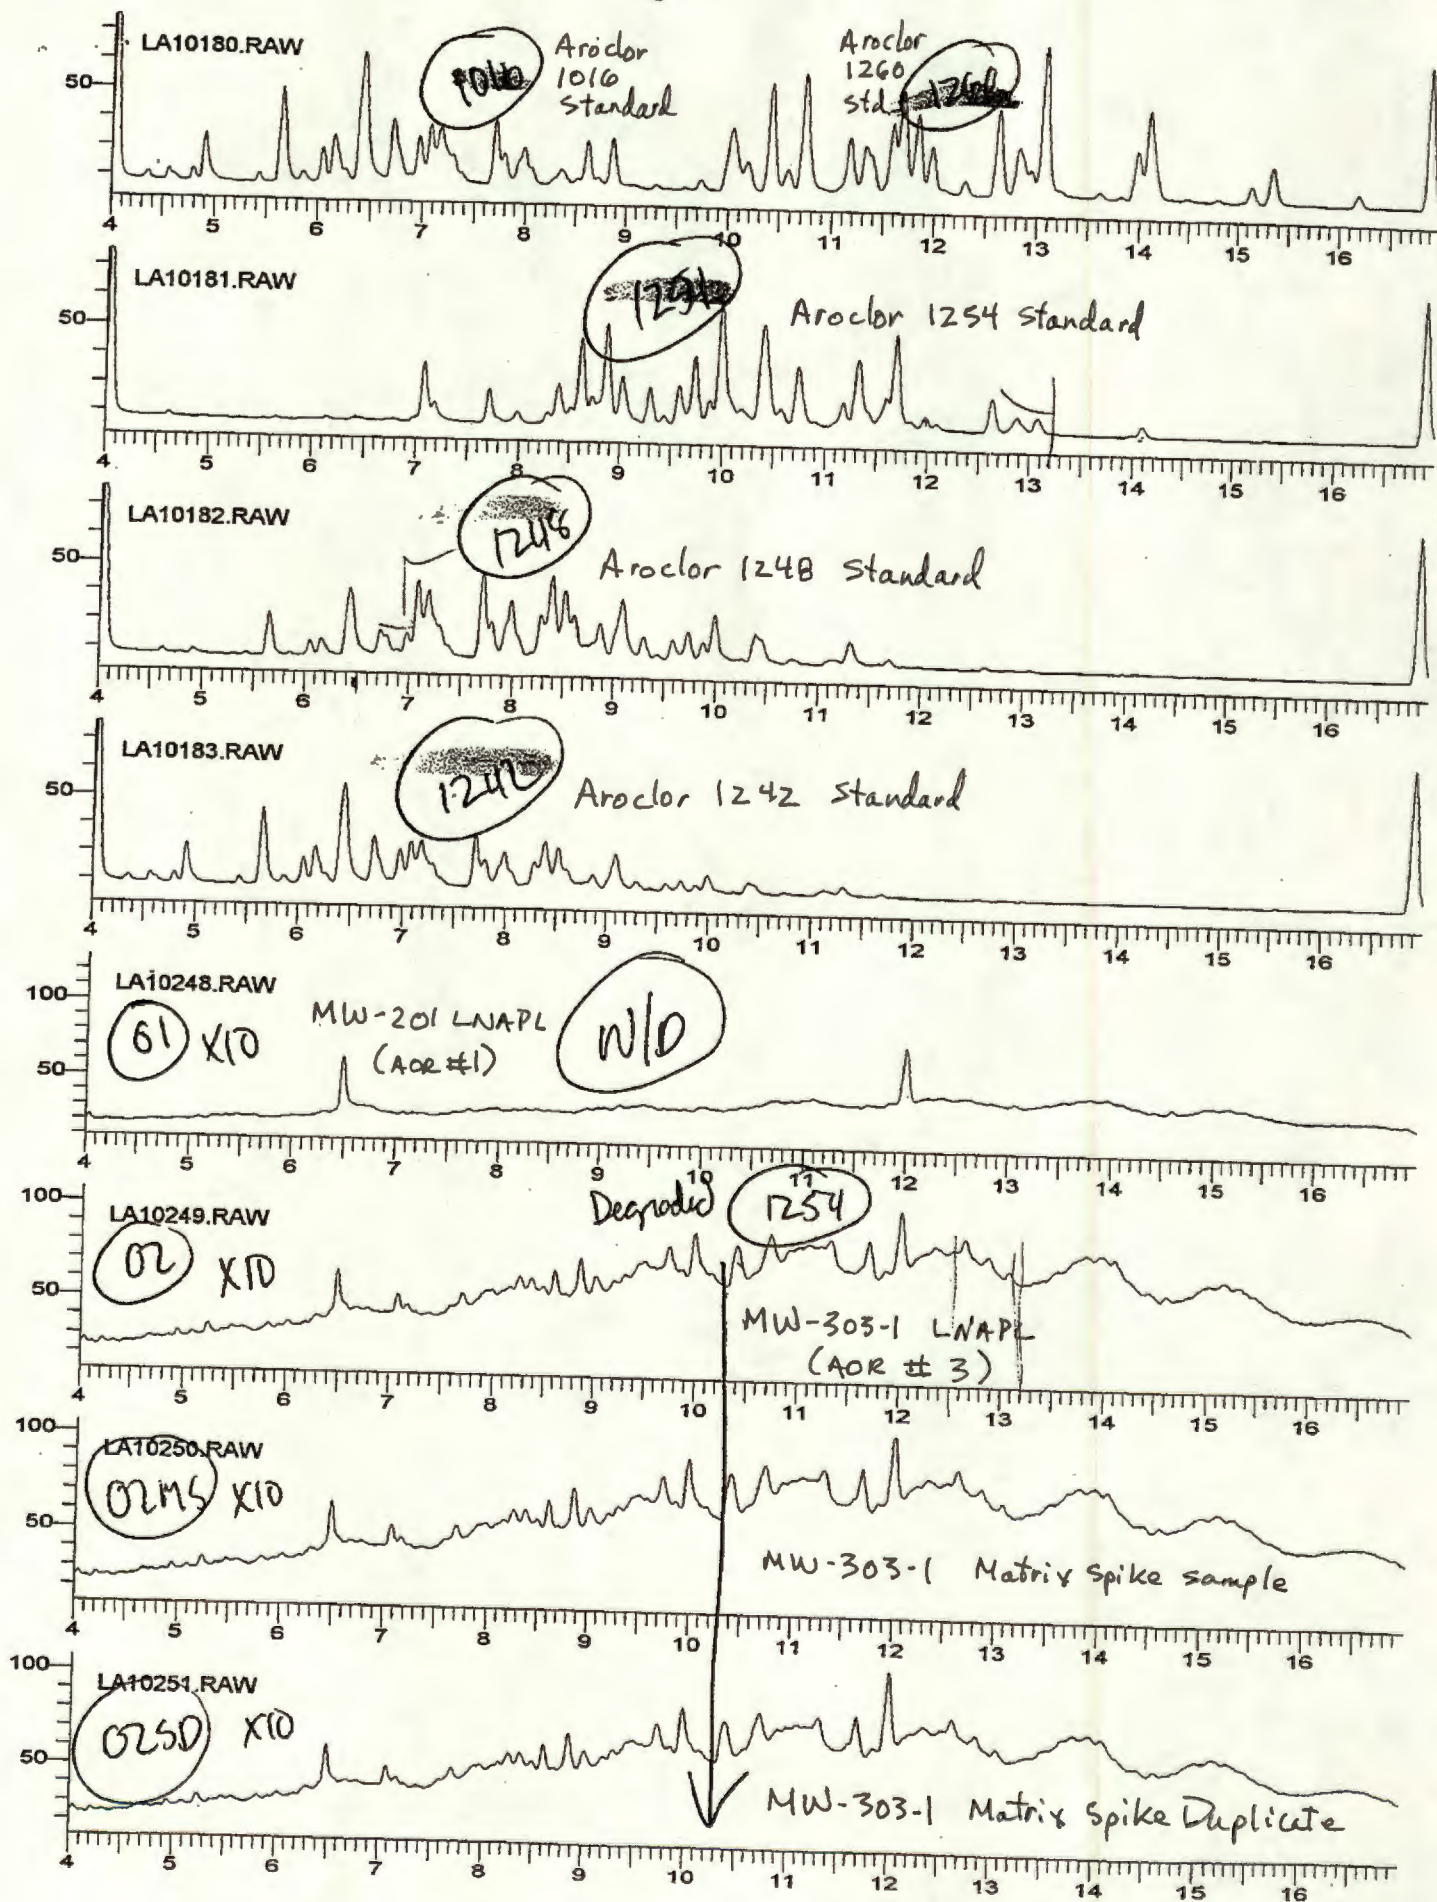 LA10180.RAW
1016
Aroclor
1016
Standard
Aroclor
1260
std.
1260
50
4 5 6 7 8 9 10 11 12 13 14 15 16
LA10181.RAW
1254
Aroclor 1254 Standard
50
4 5 6 7 8 9 10 11 12 13 14 15 16
LA10182.RAW
1248
Aroclor 1248 Standard
50
4 5 6 7 8 9 10 11 12 13 14 15 16
LA10183.RAW
1242
Aroclor 1242 Standard
50
4 5 6 7 8 9 10 11 12 13 14 15 16
LA10248.RAW
100
01 X10
MW-201 LNAPL
(AOR #1)
N/D
50
4 5 6 7 8 9 10 11 12 13 14 15 16
100
LA10249.RAW
Degraded 1254
02 X10
50
MW-303-1 LNAPL
(AOR # 3)
4 5 6 7 8 9 10 11 12 13 14 15 16
100
LA10250.RAW
02MS X10
50
MW-303-1 Matrix Spike sample
4 5 6 7 8 9 10 11 12 13 14 15 16
100
LA10251.RAW
02SD X10
50
MW-303-1 Matrix Spike Duplicate
4 5 6 7 8 9 10 11 12 13 14 15 16